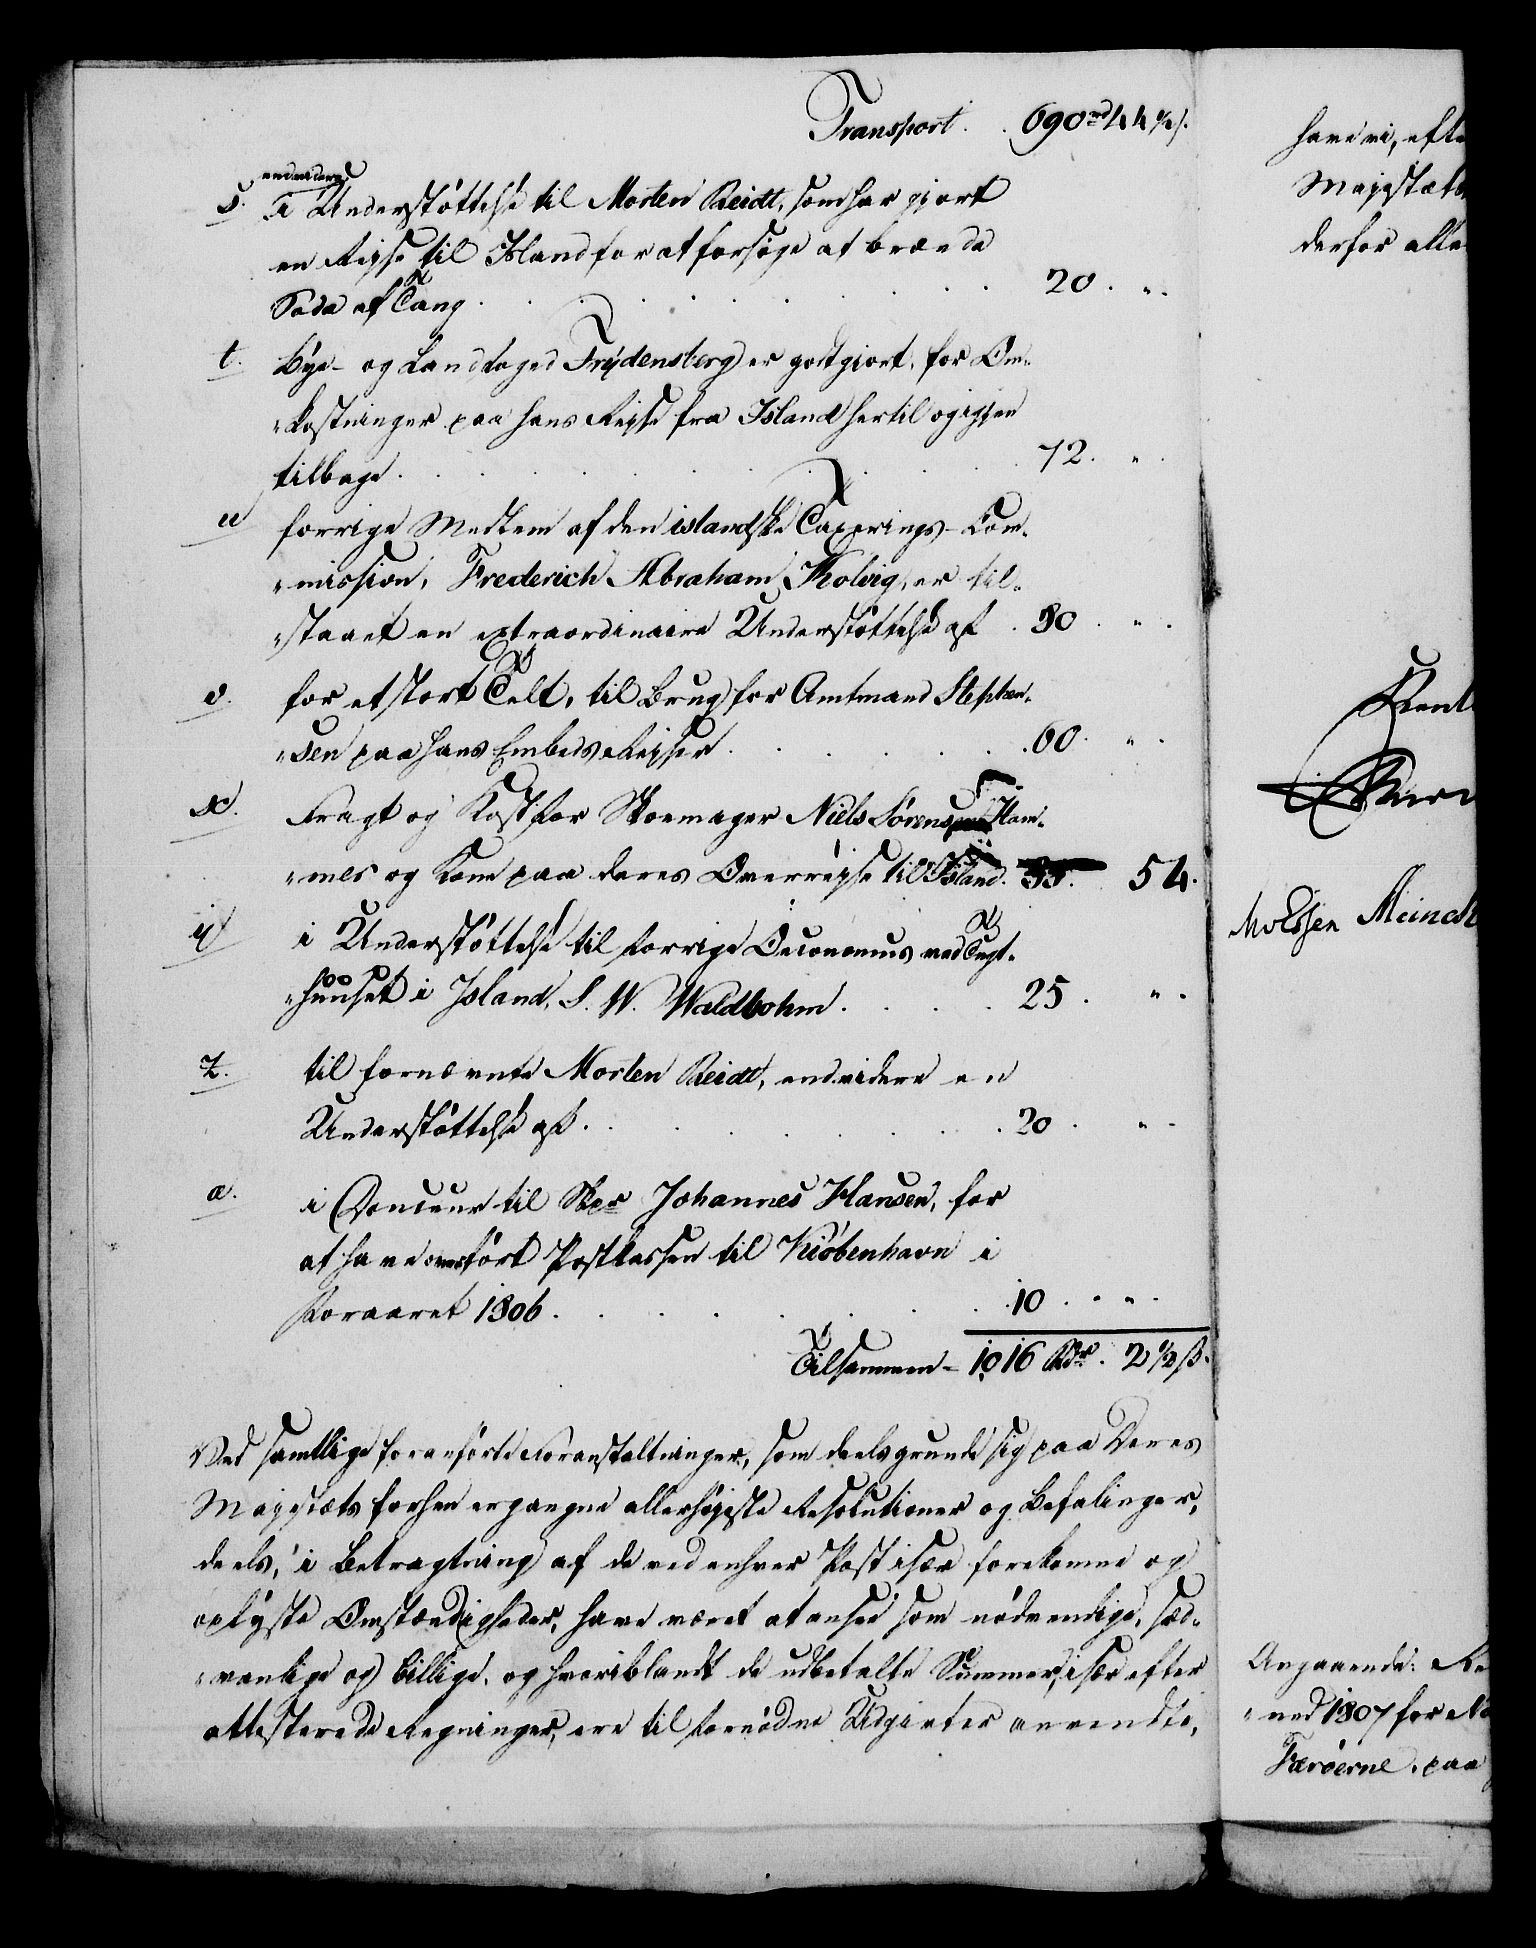 Transport . . 690 rd 44 ½ s.
endvidere
s. i Understøttelse til Morten Reidt, som har gjort
en Rejse til Island for at forsøge at brænde
Soda af Tang . . . . . . . . . . 20 . „ .
t. Bye- og Landfoged Frydensberg er godtgiort, for Om-
„kostninger paa hans Rejse fra Island hertil og igjen
tilbage . . . . . . . . . . 72 . „ .
u forrige Medlem af den islandske Taxerings-Com-
„mission, Frederich Abraham Kolvig, er til-
„staaet en extraordinaire Understøttelse af . 30 . „ .
v. for et stort Telt, til Brug for Amtmand Stephen-
„sen paa hans Embeds Rejser . . . . . . 60 . „ .
x. Fragt og Kost for Skoemager Niels Sørensen Ham-
„mer og Kone paa deres Overrejse til Island . 35. 54.
y i Understøttelse til forrige Oeconomus ved Tugt-
„huuset i Island, S. W. Waldbohm . . . . 25 . „ .
z. til fornævnte Morten Reidt, endvidere en
Understøttelse af . . . . . . . . 20 . „ .
a. i Douceur til Skpr Johannes Hansen, for
at have overført Postkassen til Kiøbenhavn i
Foraaret 1806 . . . . . . . . 10 . . „ .
Tilsammen - 1016 Rdr . 2 ½ s.
Ved samtlige foranførte Foranstaltninger, som deels grunde sig paa Deres
Majestæts forhen ergangne allerhøjeste Resolutioner og Befalinger,
deels, i Betragtning af de ved enhver Post især forekomne og
oplyste Omstændigheder, have været at ansee som nødvendige, sæd-
„vanlige og billige, og hvoriblandt de udbetalte Summer, især efter
attesterede Regninger, ere til fornødne Udgivter anvendte,
have vi, efte
Majestæts
derfor alle
Rent
MvEssen Meinch
Angaaende: Re
„ned 1807 for
Færøerne, paa